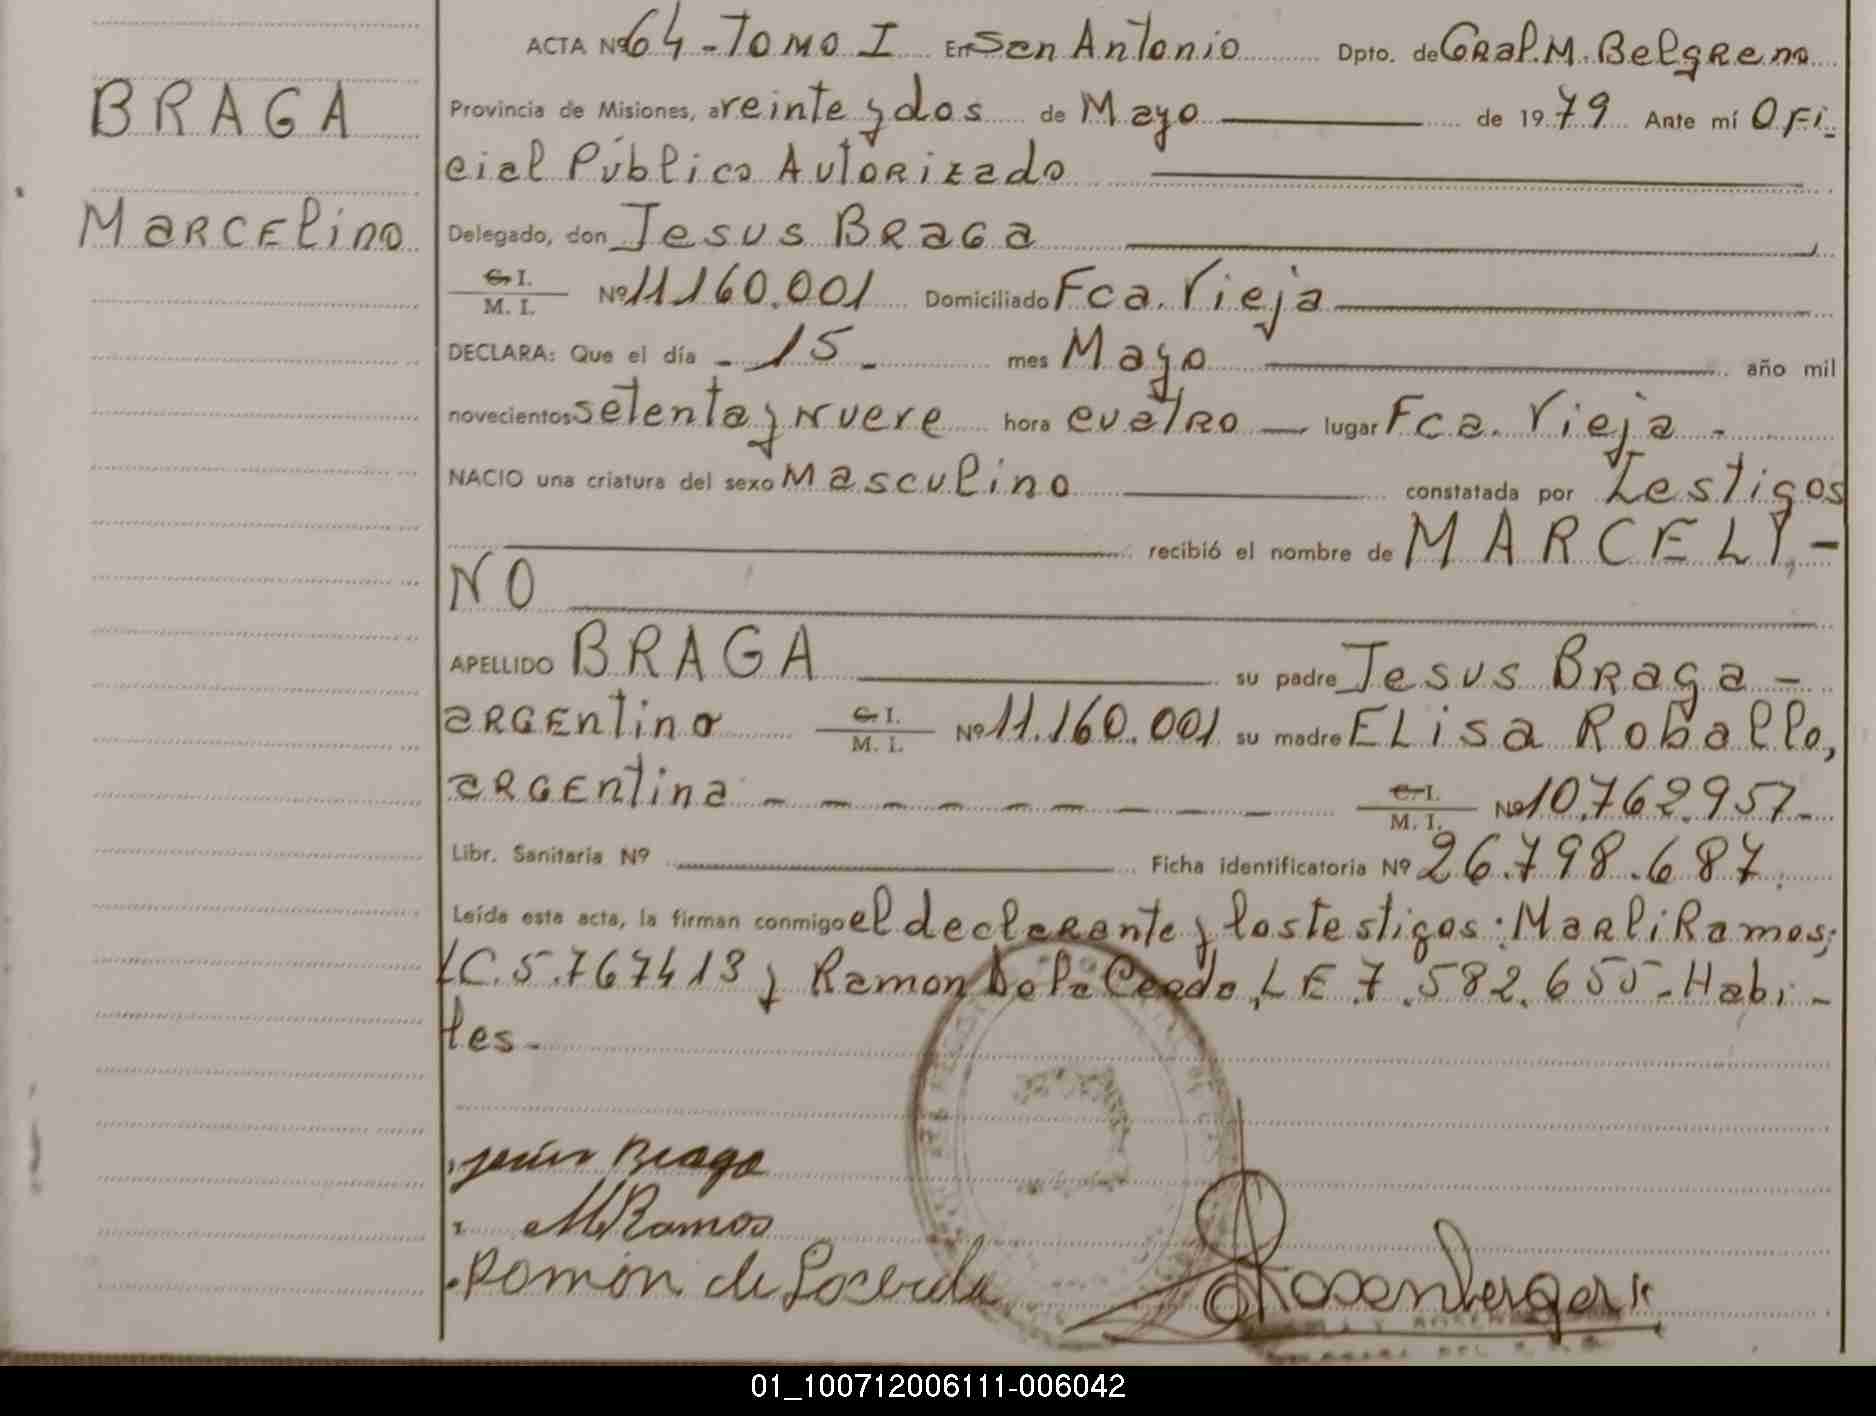 ACTA Nº 64 - Tomo I En San Antonio Dpto. de Gral. M. Belgrano
BRAGA
Provincia de Misiones, a veinte y dos de Mayo de 1979 Ante mí Ofi-
cial Público Autorizado
Marcelino
Delegado, don Jesus Braga
C. I. / M. I. Nº 11160.001 Domiciliado Fca. Vieja
DECLARA: Que el día - 15 - mes Mayo año mil
novecientos setenta y nueve hora cuatro lugar Fca. Vieja -
NACIO una criatura del sexo Masculino constatada por Testigos
recibió el nombre de MARCELI-
NO
APELLIDO BRAGA su padre Jesus Braga -
argentino C. I. / M. I. Nº 11.160.001 su madre Elisa Roballo,
argentina - - - - - - - - C. I. / M. I. Nº 10.762.957-
Libr. Sanitaria Nº Ficha identificatoria Nº 26.798.687.
Leída esta acta, la firman conmigo el declarante y los testigos: Marli Ramos;
LC. 5.767413 y Ramon De La Cerda, LE 7.582.655- Habi-
les-
Jesús Braga
M Ramos
Ramón de Lacerda
Rosenberger
01_100712006111-006042